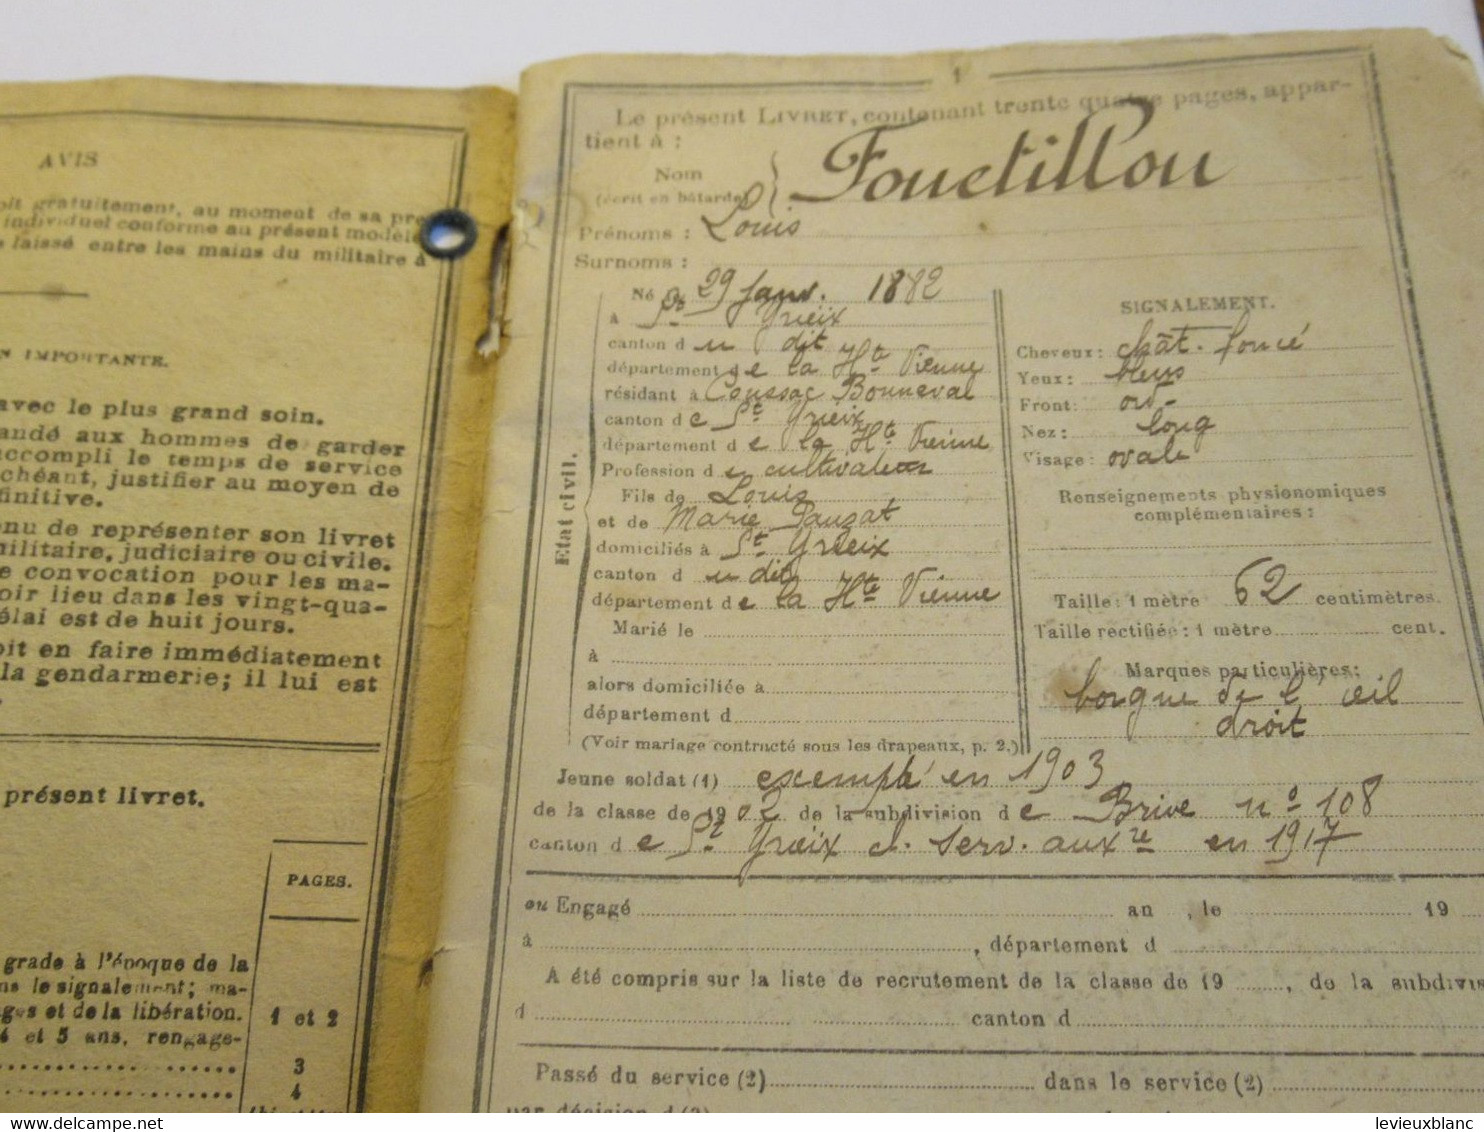 AVIS
oit gratuitement, au moment de sa pre
individuel conforme au présent modèle
laissé entre les mains du militaire à
N IMPORTANTE.
avec le plus grand soin.
andé aux hommes de garder
accompli le temps de service
chéant, justifier au moyen de
finitive.
enu de représenter son livret
militaire, judiciaire ou civile.
e convocation pour les ma-
oir lieu dans les vingt-qua-
élai est de huit jours.
oit en faire immédiatement
la gendarmerie; il lui est
présent livret.
PAGES.
grade à l'époque de la
ns le signalement; ma-
ges et de la libération.
1 et 2
4 et 5 ans, rengage-
3
4
1
Le présent LIVRET, contenant trente quatre pages, appar-
tient à :
Nom
(écrit en bâtarde)
Fouetillou
Prénoms : Louis
Surnoms :
Né 29 Janv. 1882
à St Yrieix
canton du dit
département de la Hte Vienne
résidant à Coussac Bonneval
canton de St Yrieix
département de la Hte Vienne
Profession de cultivateur
Fils de Louis
et de Marie Pauzat
domiciliés à St Yrieix
canton du dit
département de la Hte Vienne
Marié le
à
alors domiciliée à
département d
(Voir mariage contracté sous les drapeaux, p. 2.)
Etat civil.
SIGNALEMENT.
Cheveux : chât. foncé
Yeux : bleus
Front : ord.
Nez : long
Visage : ovale
Renseignements physionomiques
complémentaires :
Taille : 1 mètre 62 centimètres.
Taille rectifiée : 1 mètre cent.
Marques particulières :
borgne de l'œil
droit
Jeune soldat (1) exempté en 1903
de la classe de 1902 de la subdivision de Brive n° 108
canton de St Yrieix cl. serv. auxre en 1917
ou Engagé an , le 19
à , département d
A été compris sur la liste de recrutement de la classe de 19 , de la subdivis
d canton d
Passé du service (2) dans le service (2)
par décision d (3)
levieuxblanc